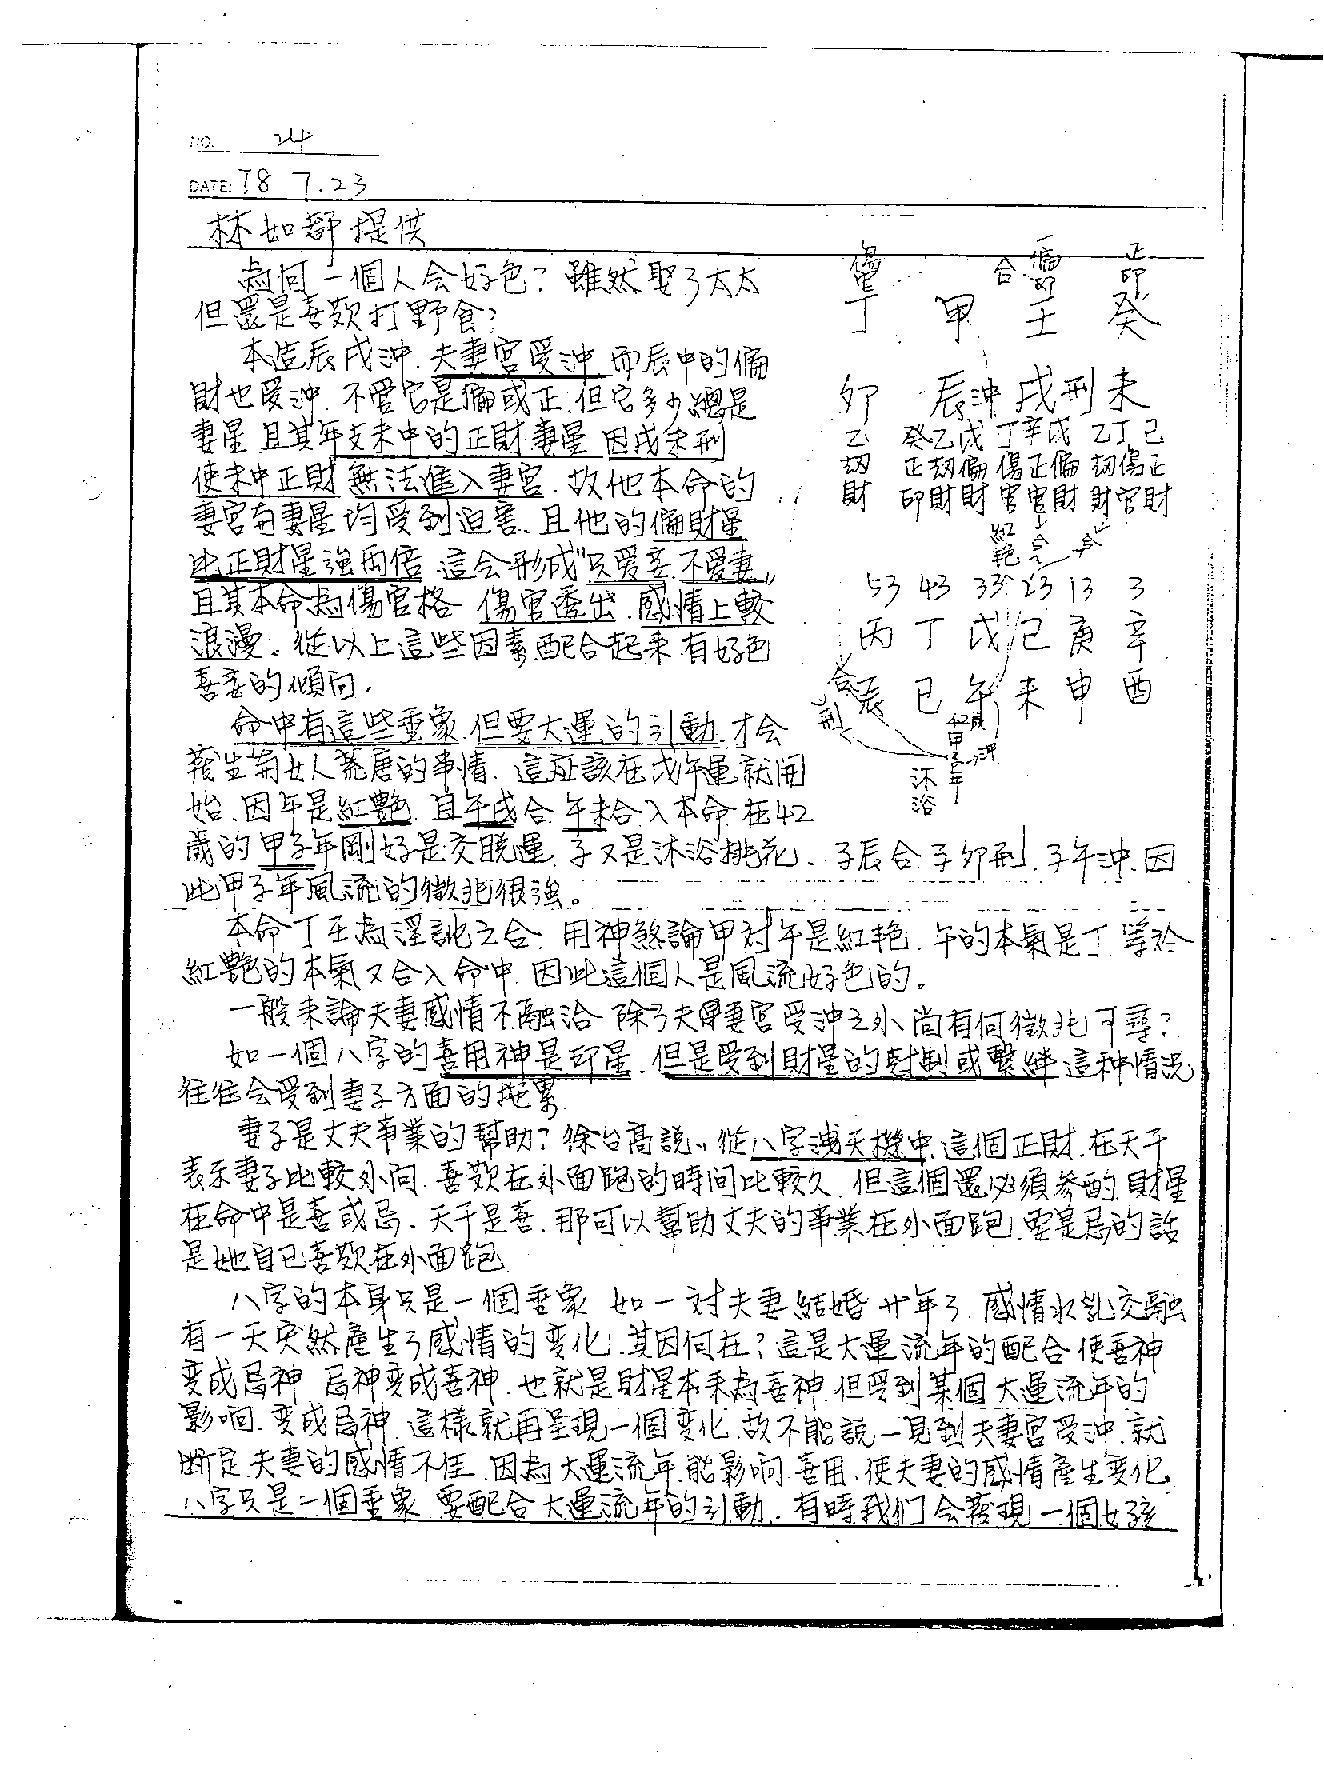 NO. 24
DATE: 78 7.23
林如郡提供
為何一個人会好色?雖然娶了太太
但還是喜歡打野食?
本造辰戌沖.夫妻宮受沖.而辰中的偏
財也受沖.不管它是偏或正.但它多少總是
妻星.且其年支未中的正財妻星.因戌未刑
使未中正財無法進入妻宮.故他本命的
妻宮與妻星均受到迫害.且他的偏財星
比正財星強兩倍.這会形成"只愛妾.不愛妻"
且其本命為傷官格.傷官透出.感情上較
浪漫.從以上這些因素配合起來有好色
喜妾的傾向.
命中有這些重象.但要大運的引動.才会
發生荒唐的事情.這应該在戊午運就開
始.因午是紅艷.且午戌合.午未合入本命.在42
歲的甲子年剛好是交脫運.子又是沐浴桃花.子辰合.子卯刑.子午沖.因
此甲子年風流的徵兆很強。
本命丁壬為淫訛之合.用神煞論甲对午是紅艳.午的本氣是丁等於
紅艷的本氣又合入命中.因此這個人是風流好色的。
一般來論夫妻感情不融洽.除了夫妻宮受沖之外.尚有何徵兆可尋?
如一個八字的喜用神是印星.但是受到財星的尅制或繫絆.這种情況
往往会受到妻子方面的拖累.
妻子是丈夫事業的幫助?徐台高說.從八字洩天機中.這個正財.在天干
表示妻子比較外向.喜歡在外面跑的時间比較久.但這個還必須参酌.財星
在命中是喜或忌.天干是喜.那可以幫助丈夫的事業在外面跑.要是忌的話
是她自己喜歡在外面跑.
八字的本身只是一個重象.如一对夫妻結婚廿年了.感情水乳交融
有一天突然產生了感情的变化.其因何在?這是大運流年的配合使喜神
变成忌神.忌神变成喜神.也就是財星本來為喜神.但受到某個大運流年的
影响.变成忌神.這樣就再呈現一個变化.故不能說一見到夫妻宮受沖.就
断定夫妻的感情不佳.因為大運流年.能影响喜用.使夫妻的感情產生变化.
八字只是一個重象.要配合大運流年的引動.有時我们会發現一個女孩
傷官 合 偏印 正印
丁 甲 壬 癸
卯 辰沖戌刑未
乙 癸乙戊 丁辛戊 乙丁己
劫財 正印 劫財 偏財 傷官 正官 偏財 劫財 傷官 正財
紅艳 合 合
53 43 33 23 13 3
丙 丁 戊 己 庚 辛
辰 巳 午 未 申 酉
合 刑 沖
42歲甲子年
沐浴